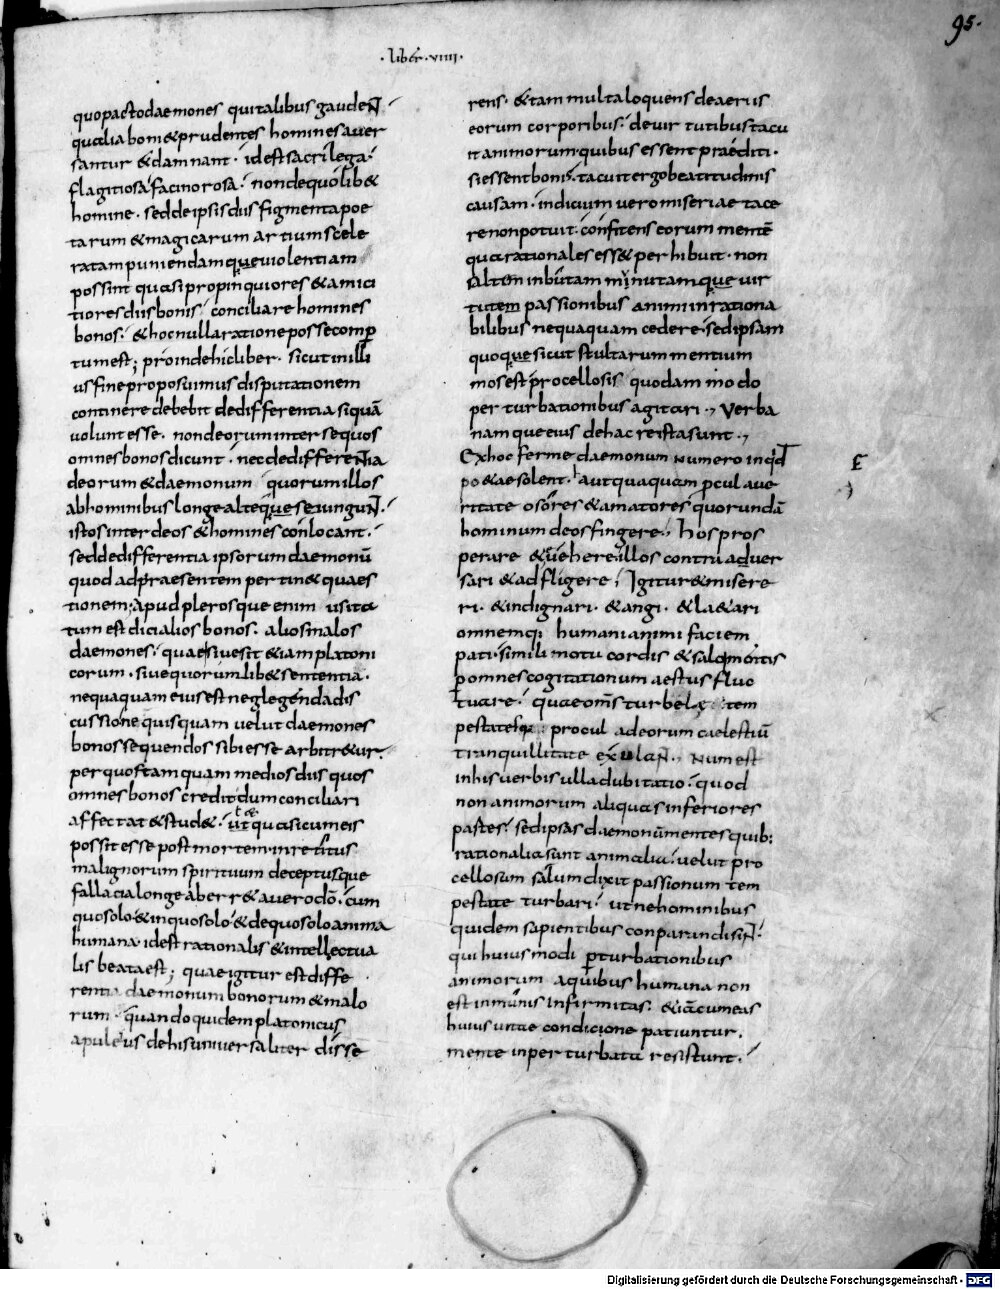 95.
· liber · viiii ·
quo pacto daemones qui talibus gaudent
qualia boni & prudentes homines aver
santur & damnant · id est sacrilega
flagitiosa facinorosa · non de quolib&
homine · sed de ipsis diis figmenta poe
tarum & magicarum artium scele
ratam puniendamque violentiam
possint quasi propinquiores & amici
tiores diis bonis conciliare homines
bonos · & hoc nulla ratione posse comper
tum est ; proinde hic liber · sicut in illi
us fine proposuimus disputationem
continere debebit de differentia si quā
volunt esse · non deorum inter se quos
omnes bonos dicunt · nec de differentia
deorum & daemonum quorum illos
ab hominibus longe alteque seiungunt ·
istos inter deos & homines conlocant ·
sed de differentia ipsorum daemonū
quod ad praesentem pertin& quaes
tionem ; Apud plerosque enim usita
tum est dici alios bonos · alios malos
daemones · quae sive sit & iam platoni
corum · sive quorumlib& sententia ·
nequaquam eius est neglegenda dis
cussione quisquam velut daemones
bonos sequendos sibi esse arbitr&ur ·
per quos tamquam medios diis quos
omnes bonos credit dum conciliari
affectat & stud& · ut quasi cum eis
possit esse post mortem inretitus
malignorum spirituum deceptusque
fallacia longe aberr& a vero dō · cum
quo solo & in quo solo & de quo solo anima
humana id est rationalis & intellectua
lis beata est ; quae igitur est diffe
rentia daemonum bonorum & malo
rum · quando quidem platonicus
apuleius de his universaliter disse
rens · & tam multa loquens de aeriis
eorum corporibus · de virtutibus tacu
it animorum quibus essent praediti ·
si essent boni · tacuit ergo beatitudinis
causam · indicium vero miseriae tace
re non potuit · confitens eorum mentē
qua rationales ess& perhibuit · non
saltem inbutam munitamque vir
tutem passionibus animi inrationa
bilibus nequaquam cedere · sed ipsam
quoque sicut stultarum mentium
mos est procellosis quodam modo
perturbationibus agitari ·, Verba
namque eius de hac re ista sunt ·,
Ex hoc ferme daemonum numero inqd
po&ae solent · haut quaquam procul a ve
ritate osores & amatores quorundā
hominum deos fingere ·, hos pros
perare & evehere · illos contra adver
sari & adfligere ; Igitur & misere
ri · & indignari · & angi · & la&ari
omnemq; humani animi faciem
pati · simili motu cordis & salo mentis
per omnes cogitationum aestus fluc
tuare · quae oms turbelae tem
pestatesque procul a deorum caelestiū
tranquillitate exulant ·, Num est
in his verbis ulla dubitatio · quod
non animorum aliquas inferiores
partes · sed ipsas daemonum mentes quib;
rationalia sunt animalia · velut pro
cellosum salum dixit passionum tem
pestate turbari · ut ne hominibus
quidem sapientibus conparandi sint ·
qui huiusmodi perturbationibus
animorum a quibus humana non
est inmunis infirmitas · & iā cum eas
huius vitae condicione patiuntur ·
mente inperturbata resistunt ·
Digitalisierung gefördert durch die Deutsche Forschungsgemeinschaft - DFG